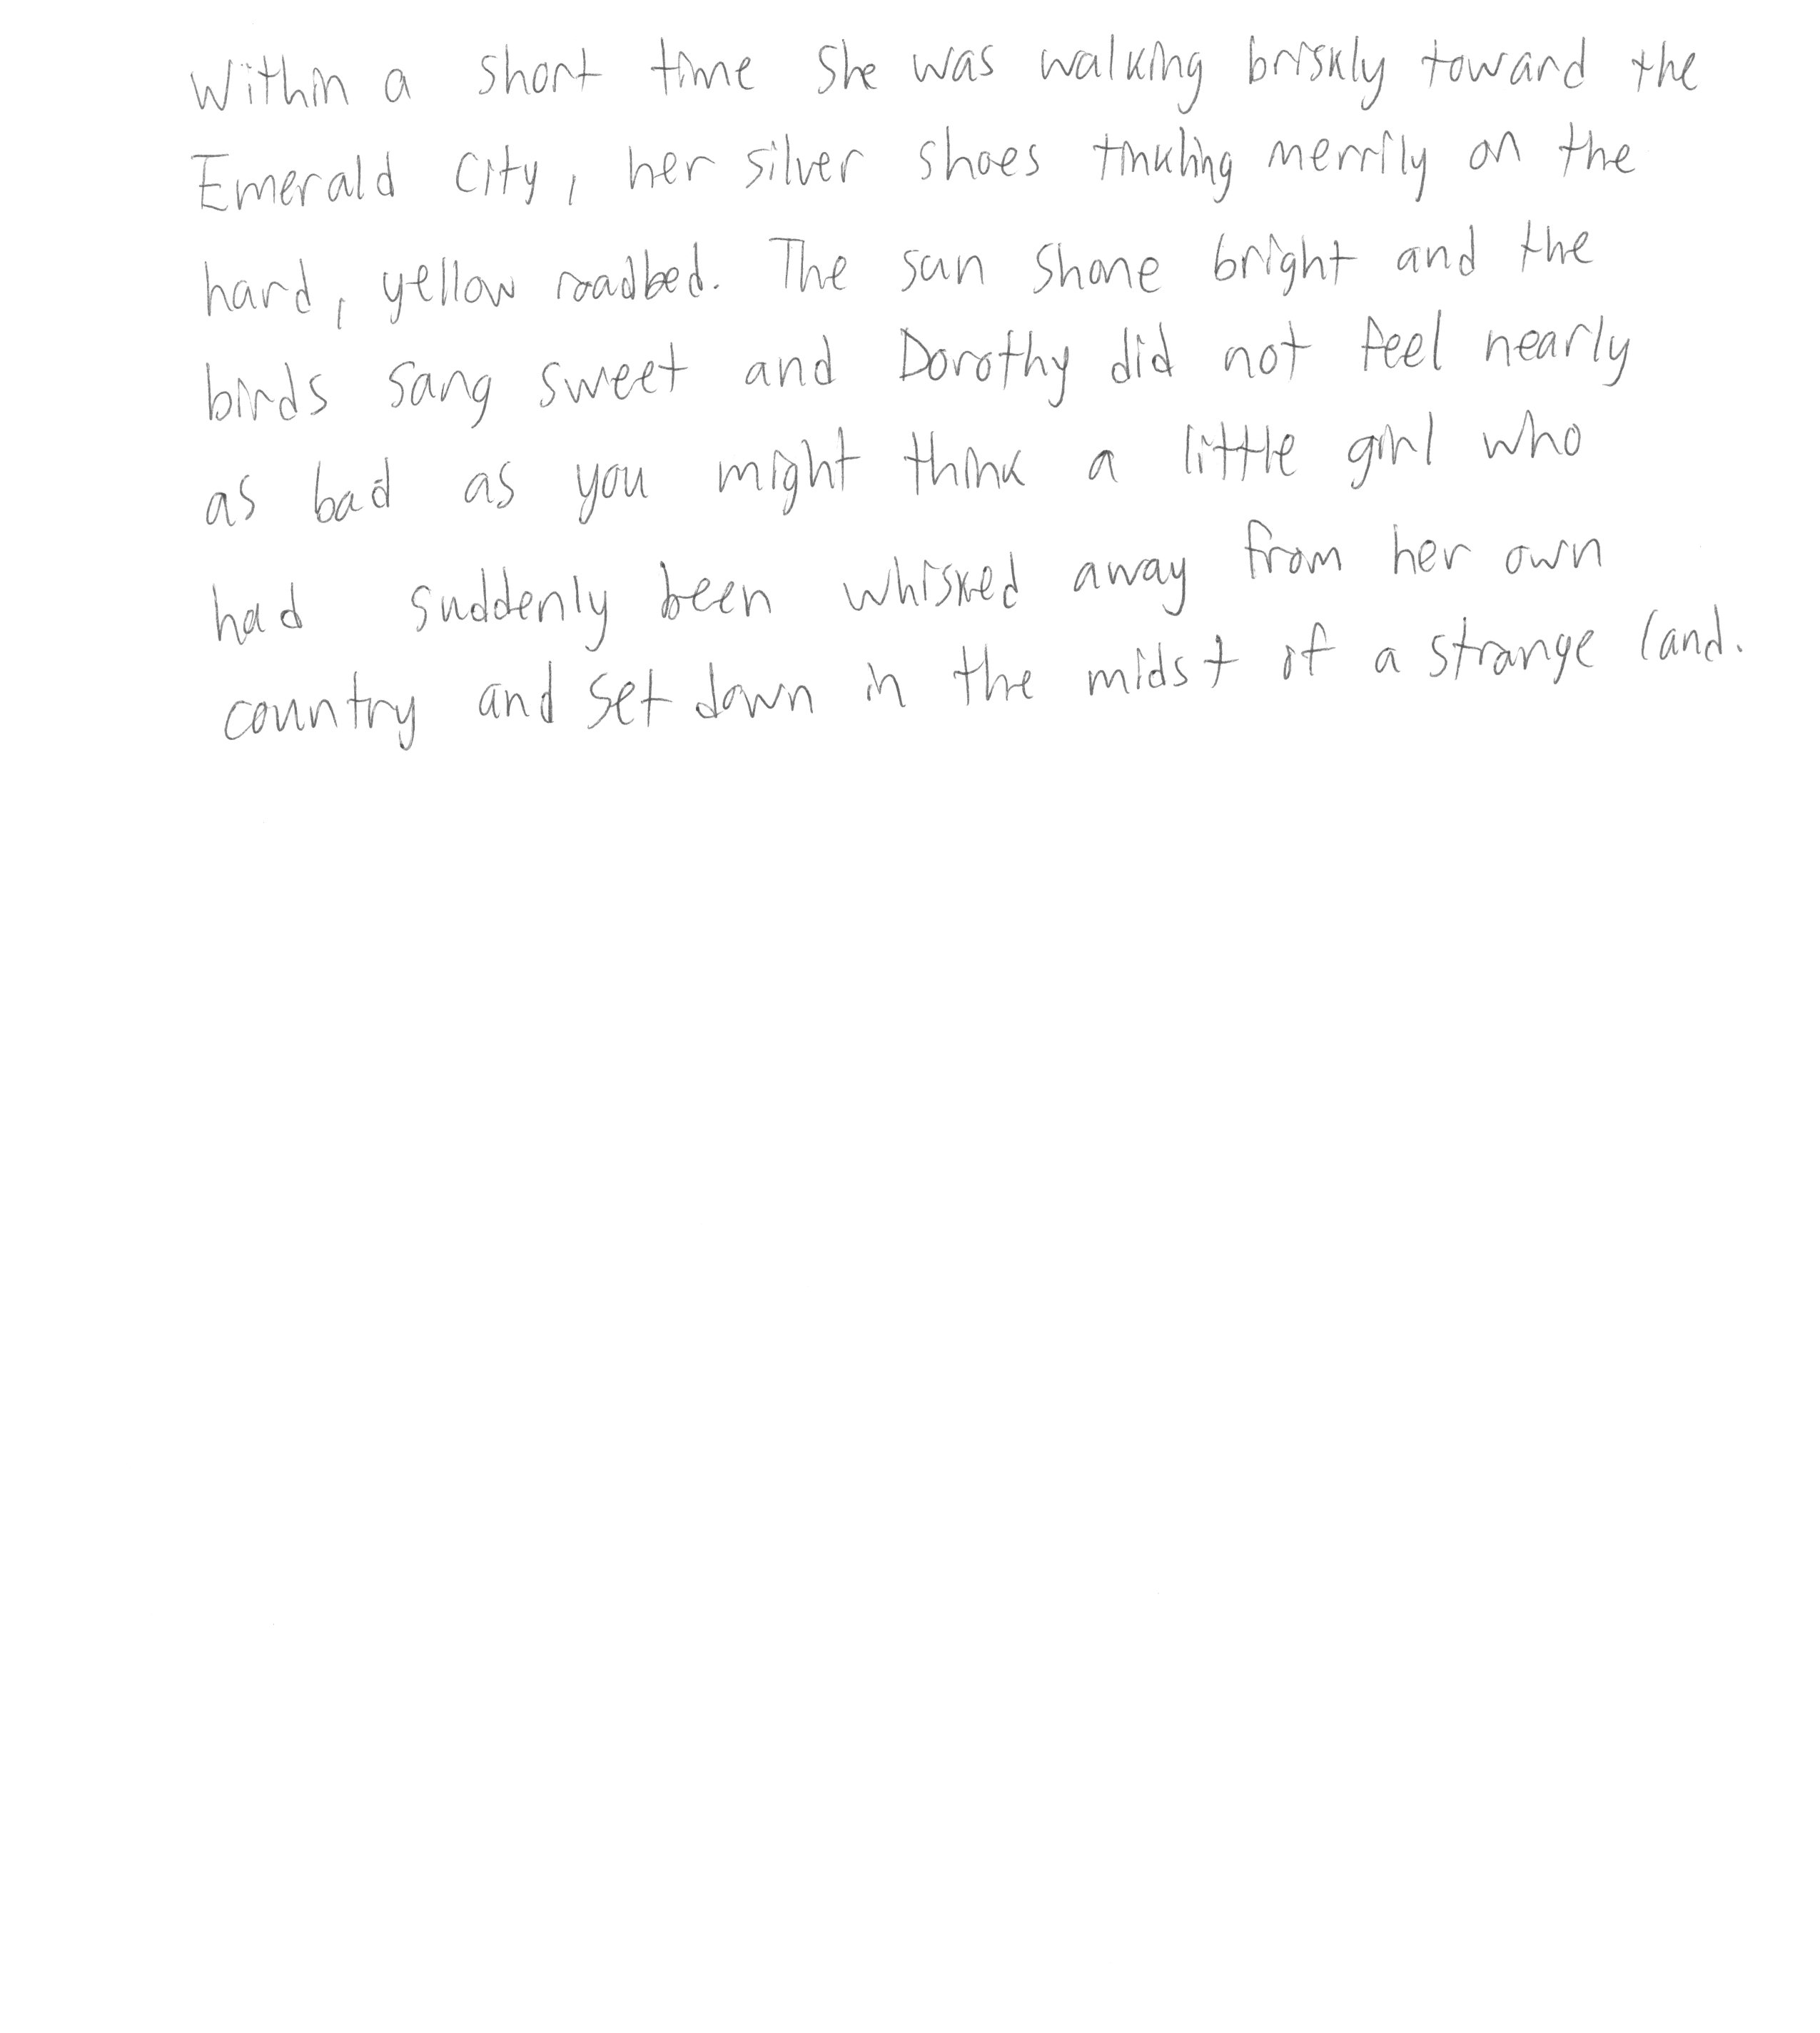 Within a short time she was walking briskly toward the
Emerald City, her silver shoes tinkling merrily on the
hard, yellow roadbed. The sun shone bright and the
birds sang sweet and Dorothy did not feel nearly
as bad as you might think a little girl who
had suddenly been whisked away from her own
country and set down in the midst of a strange land.